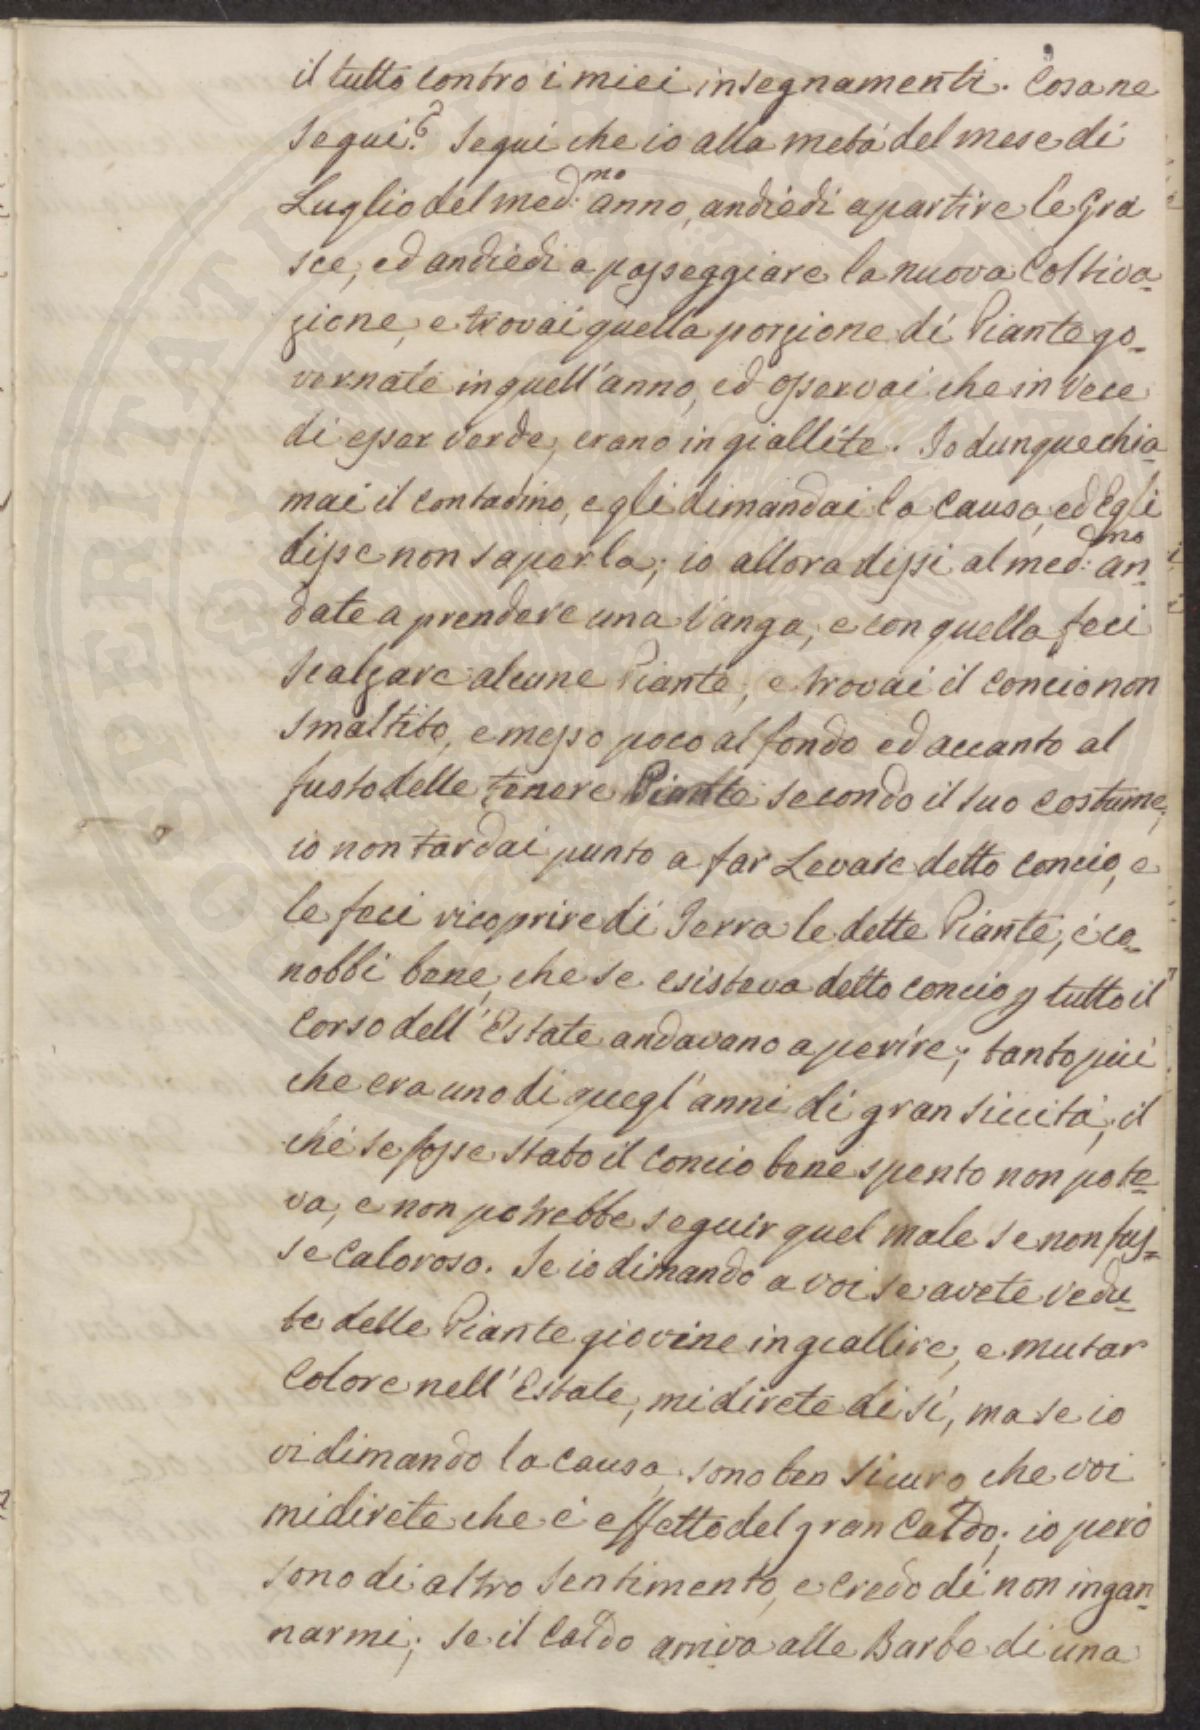 il tutto contro i miei insegnamenti. Cosa ne
seguì? Seguì che io alla metà del mese di
Luglio del med:mo anno, andiedi a partire le Gra
sce, ed andiedi a passeggiare la nuova Coltiva-
zione, e trovai quella porzione di Piante go-
vernate in quell'anno, ed osservai che in vece
di esser verde, erano ingiallite. Io dunque chia-
mai il contadino, e gli dimandai la causa, ed Egli
disse non saperla; io allora dissi al med:mo an-
date a prendere una Vanga, e con quella feci
scalzare alcune Piante, e trovai il concio non
smaltito, e messo poco al fondo ed accanto al
fusto delle tenere Piante secondo il suo costume,
io non tardai punto a far Levare detto concio, e
le feci ricoprire di Terra le dette Piante, e co-
nobbi bene, che se esisteva detto concio p tutto il
corso dell'Estate andavano a perire; tanto più
che era uno di quegl'anni di gran siccità, il
che se fosse stato il concio bene spento non pote-
va, e non potrebbe seguir quel male se non fus-
se caloroso. Se io dimando a voi se avete vedu-
te delle Piante giovine ingiallire, e mutar
Colore nell'Estate, mi direte di sì, ma se io
vi dimando la causa, sono ben sicuro che voi
mi direte che è effetto del gran Caldo; io però
sono di altro sentimento, e credo di non ingan-
narmi; se il Caldo arriva alle Barbe di una
OPERITATI